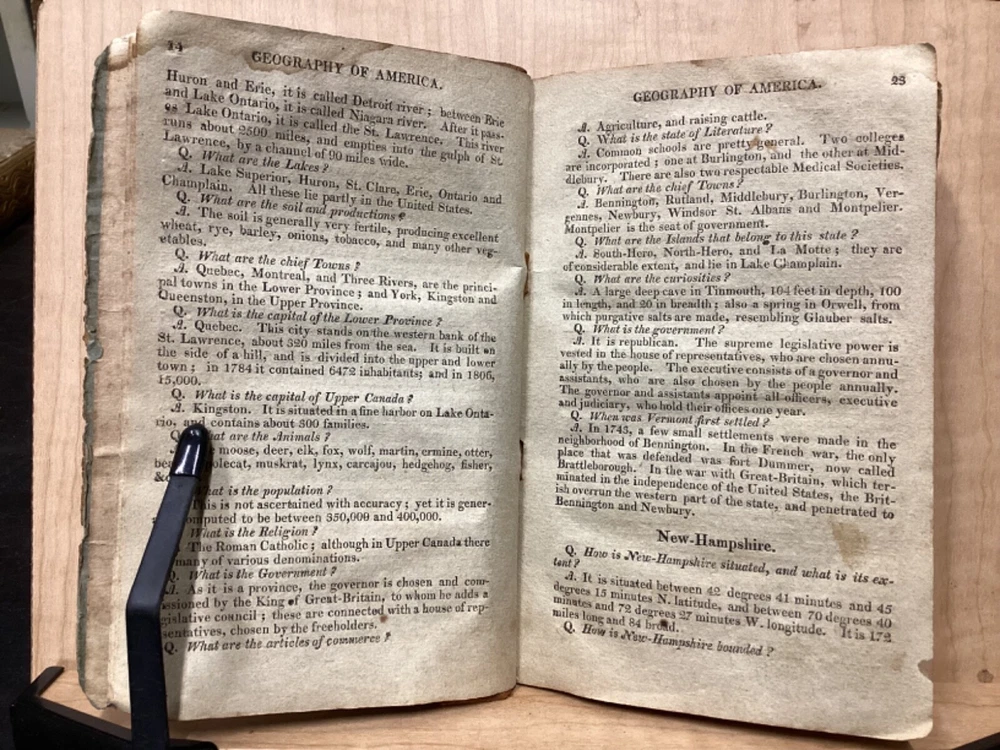 14
GEOGRAPHY OF AMERICA.
Huron and Erie, it is called Detroit river; between Erie
and Lake Ontario, it is called Niagara river. After it pass-
es Lake Ontario, it is called the St. Lawrence. This river
runs about 2500 miles, and empties into the gulph of St.
Lawrence, by a channel of 90 miles wide.
Q. What are the Lakes?
A. Lake Superior, Huron, St. Clare, Erie, Ontario and
Champlain. All these lie partly in the United States.
Q. What are the soil and productions?
A. The soil is generally very fertile, producing excellent
wheat, rye, barley, onions, tobacco, and many other veg-
etables.
Q. What are the chief Towns?
A. Quebec, Montreal, and Three Rivers, are the princi-
pal towns in the Lower Province; and York, Kingston and
Queenston, in the Upper Province.
Q. What is the capital of the Lower Province?
A. Quebec. This city stands on the western bank of the
St. Lawrence, about 320 miles from the sea. It is built on
the side of a hill, and is divided into the upper and lower
town; in 1784 it contained 6472 inhabitants; and in 1806,
15,000.
Q. What is the capital of Upper Canada?
A. Kingston. It is situated in a fine harbor on Lake Onta-
rio, and contains about 300 families.
Q. What are the Animals?
moose, deer, elk, fox, wolf, martin, ermine, otter,
polecat, muskrat, lynx, carcajou, hedgehog, fisher,
&c
What is the population?
This is not ascertained with accuracy; yet it is gener-
computed to be between 350,000 and 400,000.
What is the Religion?
The Roman Catholic; although in Upper Canada there
many of various denominations.
Q. What is the Government?
A. As it is a province, the governor is chosen and com-
issioned by the King of Great-Britain, to whom he adds a
gislative council; these are connected with a house of rep-
sentatives, chosen by the freeholders.
Q. What are the articles of commerce?
GEOGRAPHY OF AMERICA.
23
A. Agriculture, and raising cattle.
Q. What is the state of Literature?
A. Common schools are pretty general. Two colleges
are incorporated; one at Burlington, and the other at Mid-
dlebury. There are also two respectable Medical Societies.
Q. What are the chief Towns?
A. Bennington, Rutland, Middlebury, Burlington, Ver-
gennes, Newbury, Windsor St. Albans and Montpelier.
Montpelier is the seat of government.
Q. What are the Islands that belong to this state?
A. South-Hero, North-Hero, and La Motte; they are
of considerable extent, and lie in Lake Champlain.
Q. What are the curiosities?
A. A large deep cave in Tinmouth, 104 feet in depth, 100
in length, and 20 in breadth; also a spring in Orwell, from
which purgative salts are made, resembling Glauber salts.
Q. What is the government?
A. It is republican. The supreme legislative power is
vested in the house of representatives, who are chosen annu-
ally by the people. The executive consists of a governor and
assistants, who are also chosen by the people annually.
The governor and assistants appoint all officers, executive
and judiciary, who hold their offices one year.
Q. When was Vermont first settled?
A. In 1743, a few small settlements were made in the
neighborhood of Bennington. In the French war, the only
place that was defended was fort Dummer, now called
Brattleborough. In the war with Great-Britain, which ter-
minated in the independence of the United States, the Brit-
ish overrun the western part of the state, and penetrated to
Bennington and Newbury.
New-Hampshire.
Q. How is New-Hampshire situated, and what is its ex-
tent?
A. It is situated between 42 degrees 41 minutes and 45
degrees 15 minutes N. latitude, and between 70 degrees 40
minutes and 72 degrees 27 minutes W. longitude. It is 172
miles long and 84 broad.
Q. How is New-Hampshire bounded?